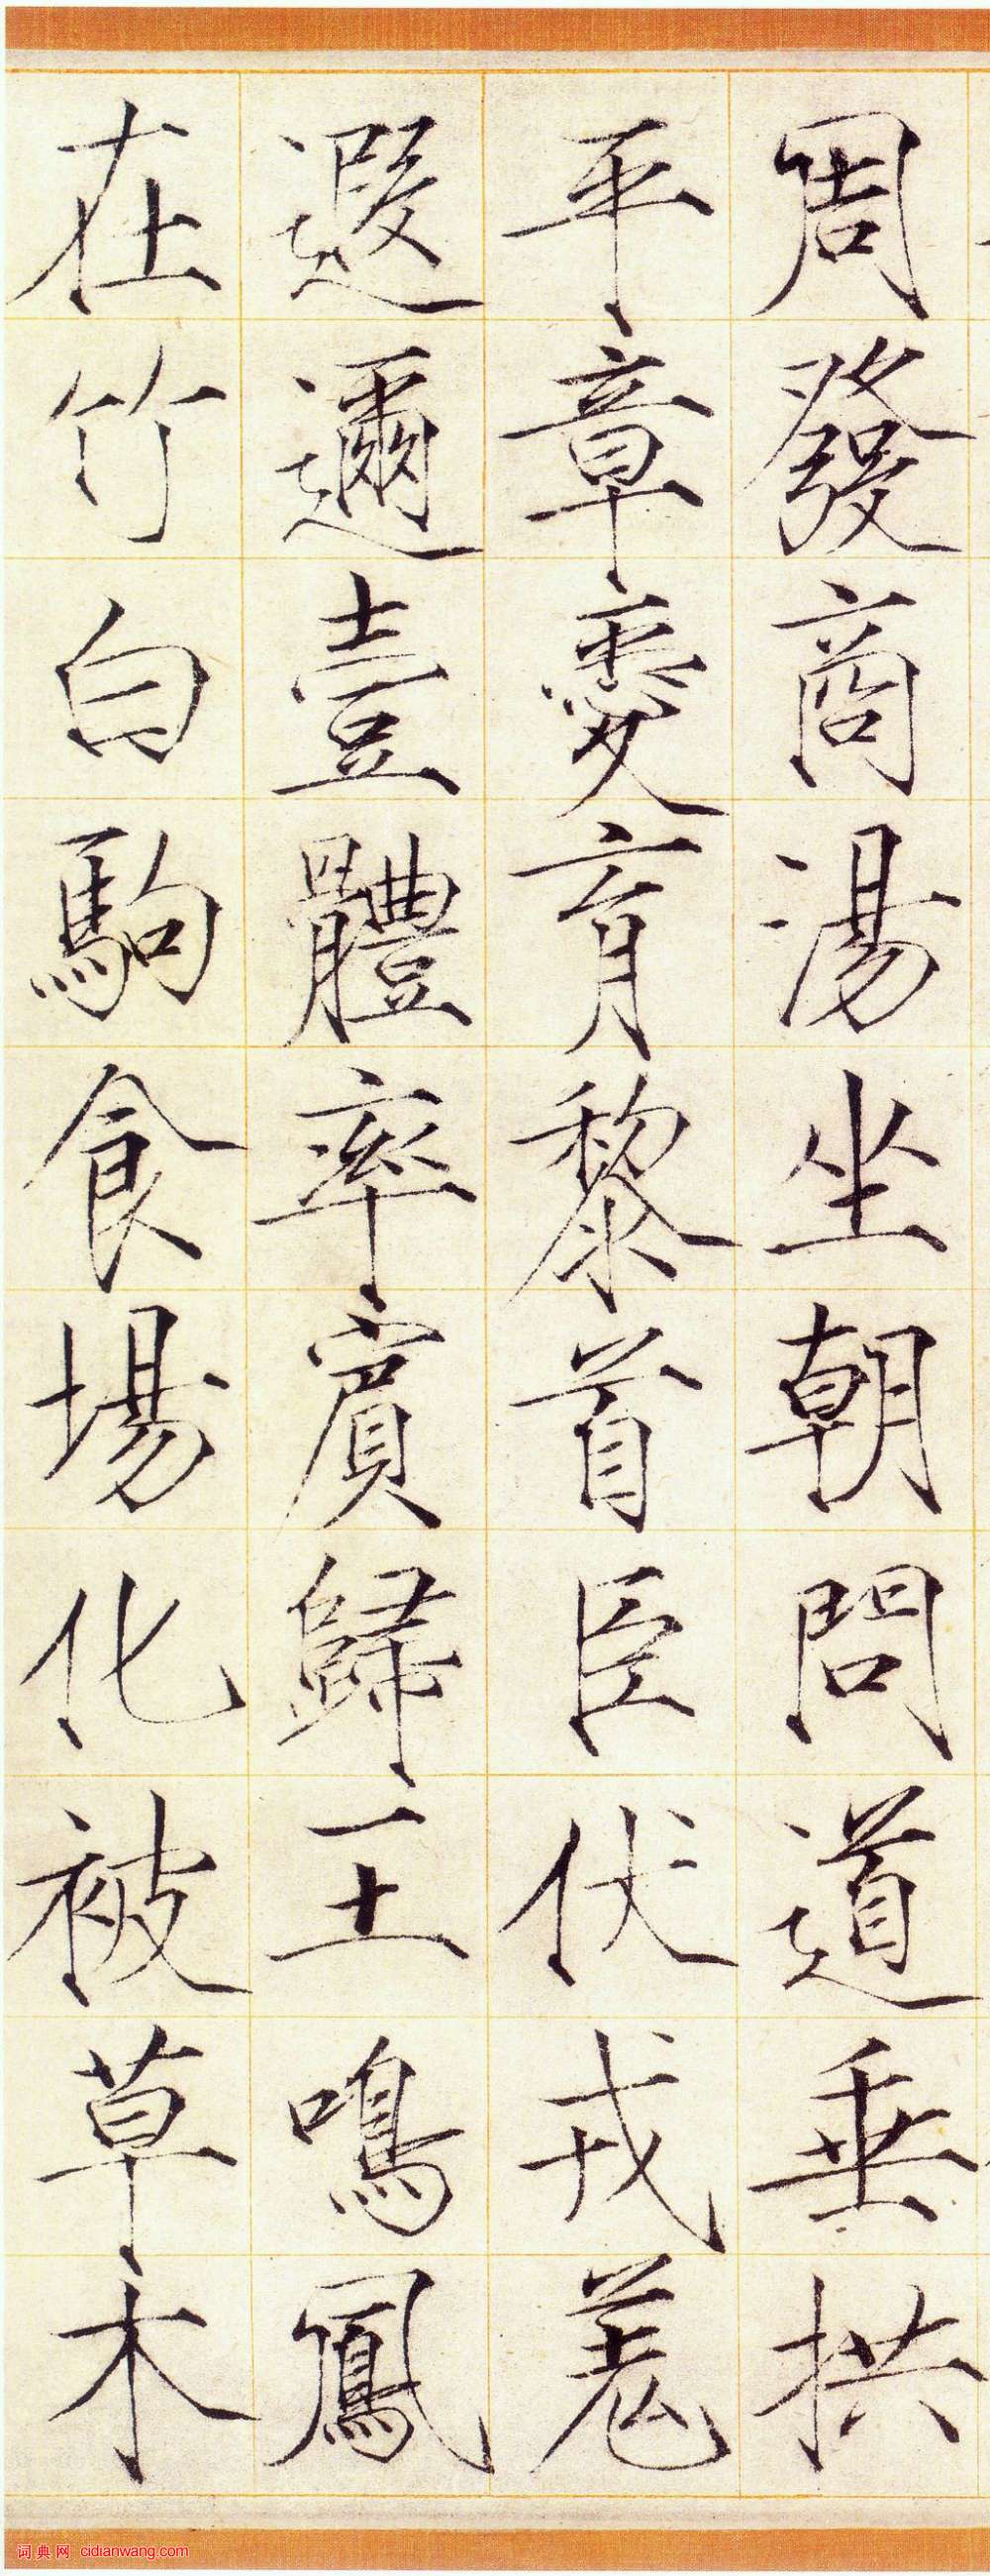 周發商湯坐朝問道垂拱
平章愛育黎首臣伏戎羌
遐邇壹體率賓歸王鳴鳳
在竹白駒食場化被草木
词典网 cidianwang.com